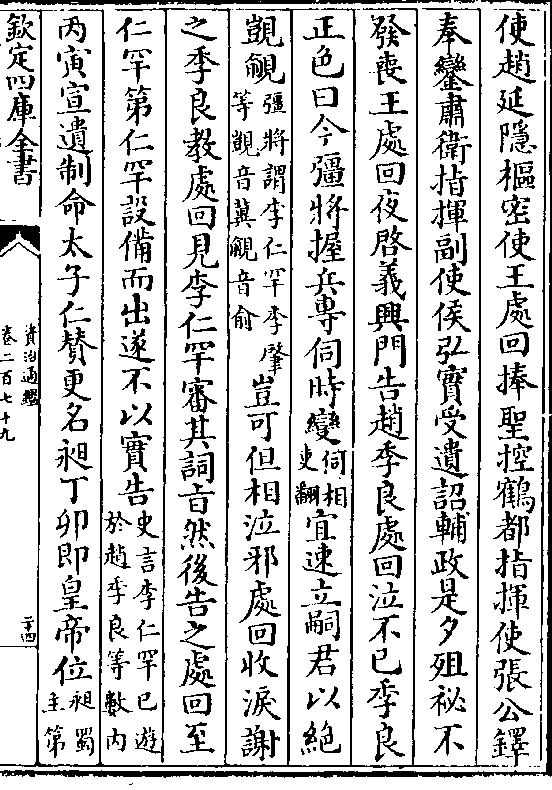 使趙延隱樞密使王處回捧聖控鶴都指揮使張公鐸
奉鑾肅衛指揮副使侯弘實受遺詔輔政是夕殂祕不
發喪王處回夜啓義興門告趙季良處回泣不已季良
正色曰今彊將握兵專伺時變伺相吏翻宜速立嗣君以絶
覬覦彊將謂李仁罕李肇等覬音冀覦音俞豈可但相泣邪處回收淚謝
之季良教處回見李仁罕審其詞旨然後告之處回至
仁罕第仁罕設備而出遂不以實告史言李仁罕已遊於趙季良等數内
丙寅宣遺制命太子仁贊更名昶丁卯即皇帝位昶蜀主第
欽定四庫全書
資治通鑑
卷二百七十九
二十四